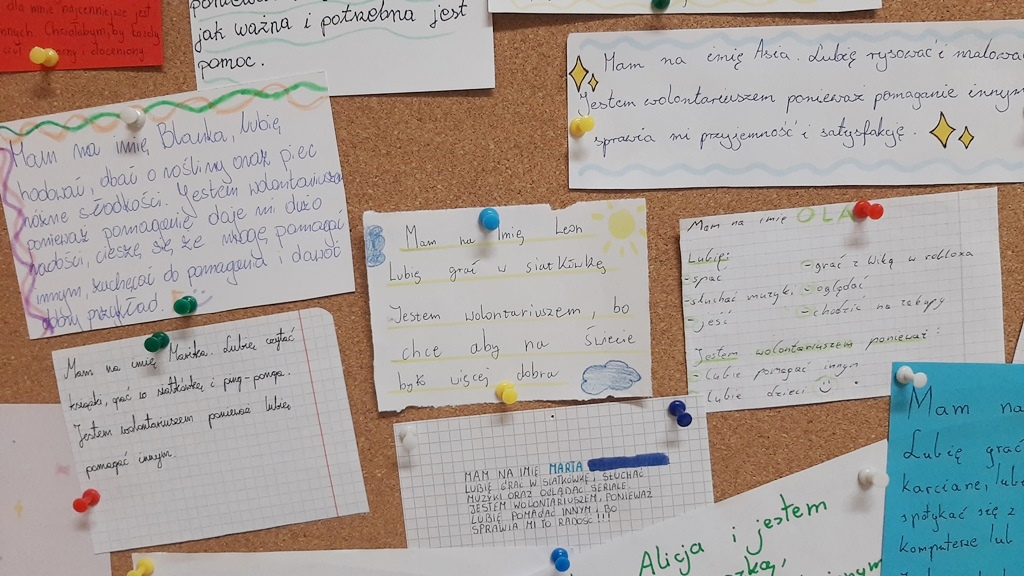 dla mnie najcenniejsze jest
innych. Chciałabym, by każdy
i doceniony.
ponieważ
jak ważna i potrzebna jest
pomoc.
Mam na imię Asia. Lubię rysować i malować
Jestem wolontariuszem ponieważ pomaganie innym
sprawia mi przyjemność i satysfakcję.
Mam na imię Blanka, lubię
hodować, dbać o rośliny oraz piec
różne słodkości. Jestem wolontariuszem
ponieważ pomaganie daje mi dużo
radości, cieszę się że mogę pomagać
innym, zachęcać do pomagania i dawać
dobry przykład.
Mam na Imię Leon
Lubię grać w siatkówkę
Jestem wolontariuszem, bo
chce aby na świecie
było więcej dobra
Mam na imię OLA
Lubię:
- spać
- słuchać muzyki
- jeść
- grać z Wiką w robloxa
- oglądać
- chodzić na zakupy
Jestem wolontariuszem ponieważ:
- Lubie pomagać innym
- Lubie dzieci
Mam na imię Marika. Lubię czytać
książki, grać w siatkówkę i ping-ponga.
Jestem wolontariuszem ponieważ lubię
pomagać innym.
MAM NA IMIĘ MARTA
LUBIĘ GRAĆ W SIATKÓWKĘ, SŁUCHAĆ
MUZYKI ORAZ OGLĄDAĆ SERIALE.
JESTEM WOLONTARIUSZEM, PONIEWAŻ
LUBIĘ POMAGAĆ INNYM I BO
SPRAWIA MI TO RADOŚĆ!!!
Mam na
Lubię grać
karciane, lub
spotykać się z
komputerze lub
Alicja i jestem